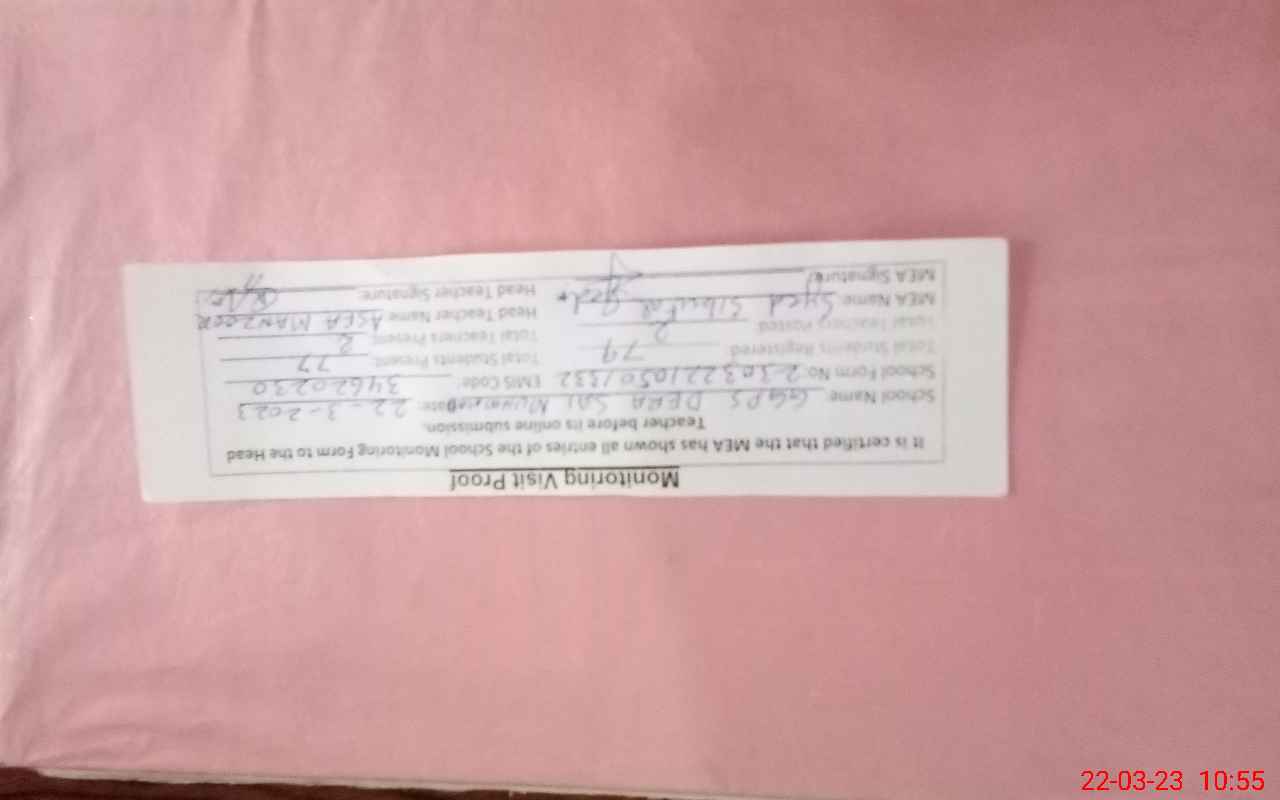 Monitoring Visit Proof
It is certified that the MEA has shown all entries of the School Monitoring Form to the Head
Teacher before its online submission.
School Name: GGPS DERA SAI MUHAMMAD Date: 22-3-2023
School Form No: 2303221050 1332 EMIS Code: 34620230
Total Students Registered: 79 Total Students Present: 77
Total Teachers Posted: 2 Total Teachers Present: 2
MEA Name: Syed Head Teacher Name: ASFA MANZOOR
MEA Signature: Head Teacher Signature:
22-03-23 10:55